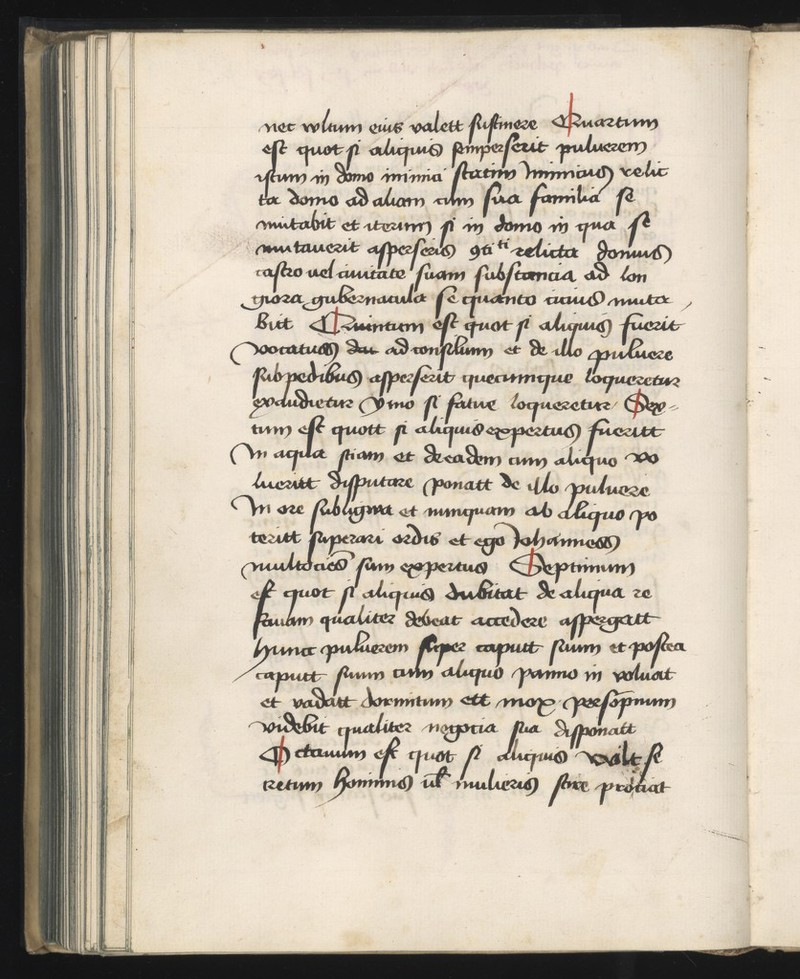 nec vvltum eius valett sustinere Quartum
est quot si aliquis semperserit puluerem
istum in domo inimici statim Inimicus relic
ta domo ad aliam cum sua familia se
mutabit et iterum si in domo in qua se
mutauerit asperseris 9ti ti relicta domus
castro uel ciuitate suam substancia ad lon
giora gubernacula se quanto cicius muta
bitt Quintum est quot si aliquis fuerit
vocatus ad consilium et de illo puluere
sub pedibus asperserit quecumque loqueretur
exaudietur Ymo si fatue loqueretur Sex-
tum est quott si aliquis expertus fueritt
In aqua stiam et de eadem cum aliquo vo
lueritt disputare ponatt de illo puluere
In ore sub ligwa et numquam ab aliquo po
teritt superari ordis et ego Iohanness
multocies sum expertus Septimum
est quot si aliquis dubitat de aliqua re
suam qualiter debeat accedere aspergatt
hunc puluerem super caputt suum et postea
caputt suum cum aliquo panno in voluat
et vadatt dormitum ett mox per sopnium
videbit qualiter negocia sua disponatt
Octauum est quot si aliquis wilt se
cretum hominis ul mulieris scire prociat